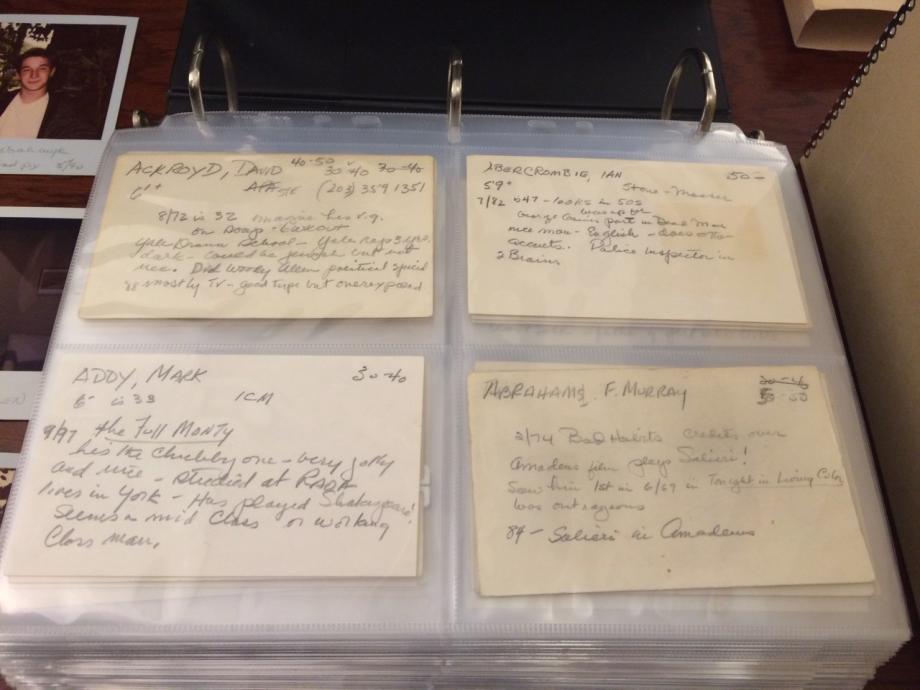 5/90
ACKROYD, DAVID 40-50 30-40 30-40
6'1" (203) 359 1351
8/72 is 32 imagine his v.g.
on Soap
Yale Drama School - Yale Rep 3 yrs.
dark - could be but not
nice. Did Woody Allen political special
'88 mostly TV - good type but overexposed
ABERCROMBIE, IAN 50-
5'9" Stone-Manners
7/82 is 47 - looks in 50s
George part in Man
nice man - English - does other
accents. Police Inspector in
2 Brains
ADDY, MARK 30-40
6- is 33 ICM
9/97 the Full MONTY
he's the chubby one - very jolly
and nice - studied at RADA
lives in York - Has played Shakespeare!
Seems a mid Class or working
Class man.
ABRAHAMS, F. MURRAY 30-40
50
2/74 Bad Habits credits over
Amadeus film plays Salieri!
Saw him 1st in 6/69 in Tonight in Living Color
was outrageous
84 - Salieri in Amadeus